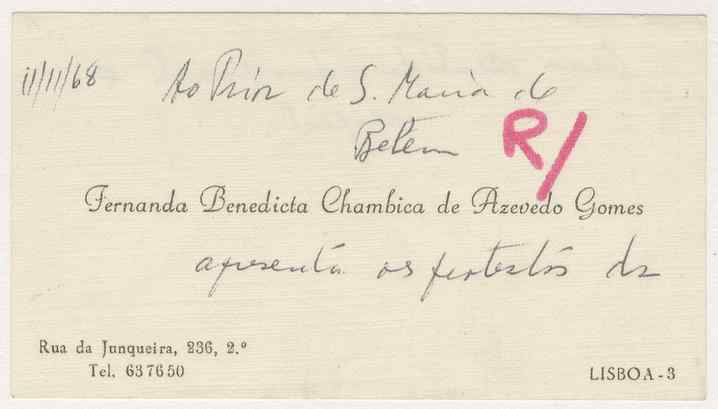 11/11/68
Ao Prior de S. Maria de
Belem
R/
Fernanda Benedicta Chambica de Azevedo Gomes
apresenta os protestos da
Rua da Junqueira, 236, 2.º
Tel. 637650
LISBOA - 3